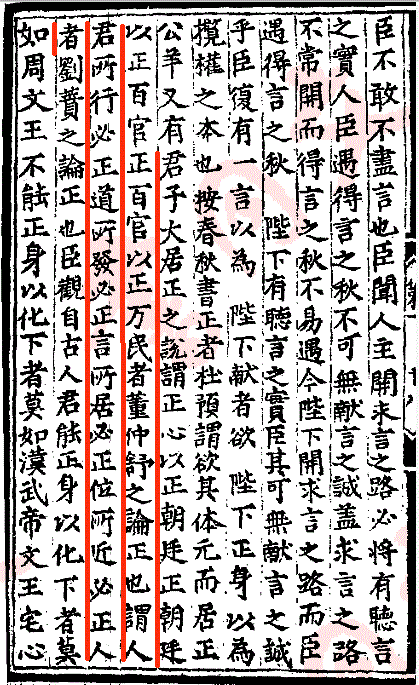 臣不敢不盡言也臣聞人主開求言之路必將有聽言
之實人臣遇得言之秋不可無献言之誠盖求言之路
不常開而得言之秋不易遇今陛下開求言之路而臣
遇得言之秋 陛下有聽言之實臣其可無献言之誠
乎臣復有一言以為 陛下献者欲 陛下正身以為
攬權之本也按春秋書正者杜預謂欲其体元而居正
公羊又有君子大居正之說謂正心以正朝廷正朝廷
以正百官正百官以正万民者董仲舒之論正也謂人
君所行必正道所發必正言所居必正位所近必正人
者劉蕡之論正也臣觀自古人君能正身以化下者莫
如周文王不能正身以化下者莫如漢武帝文王宅心